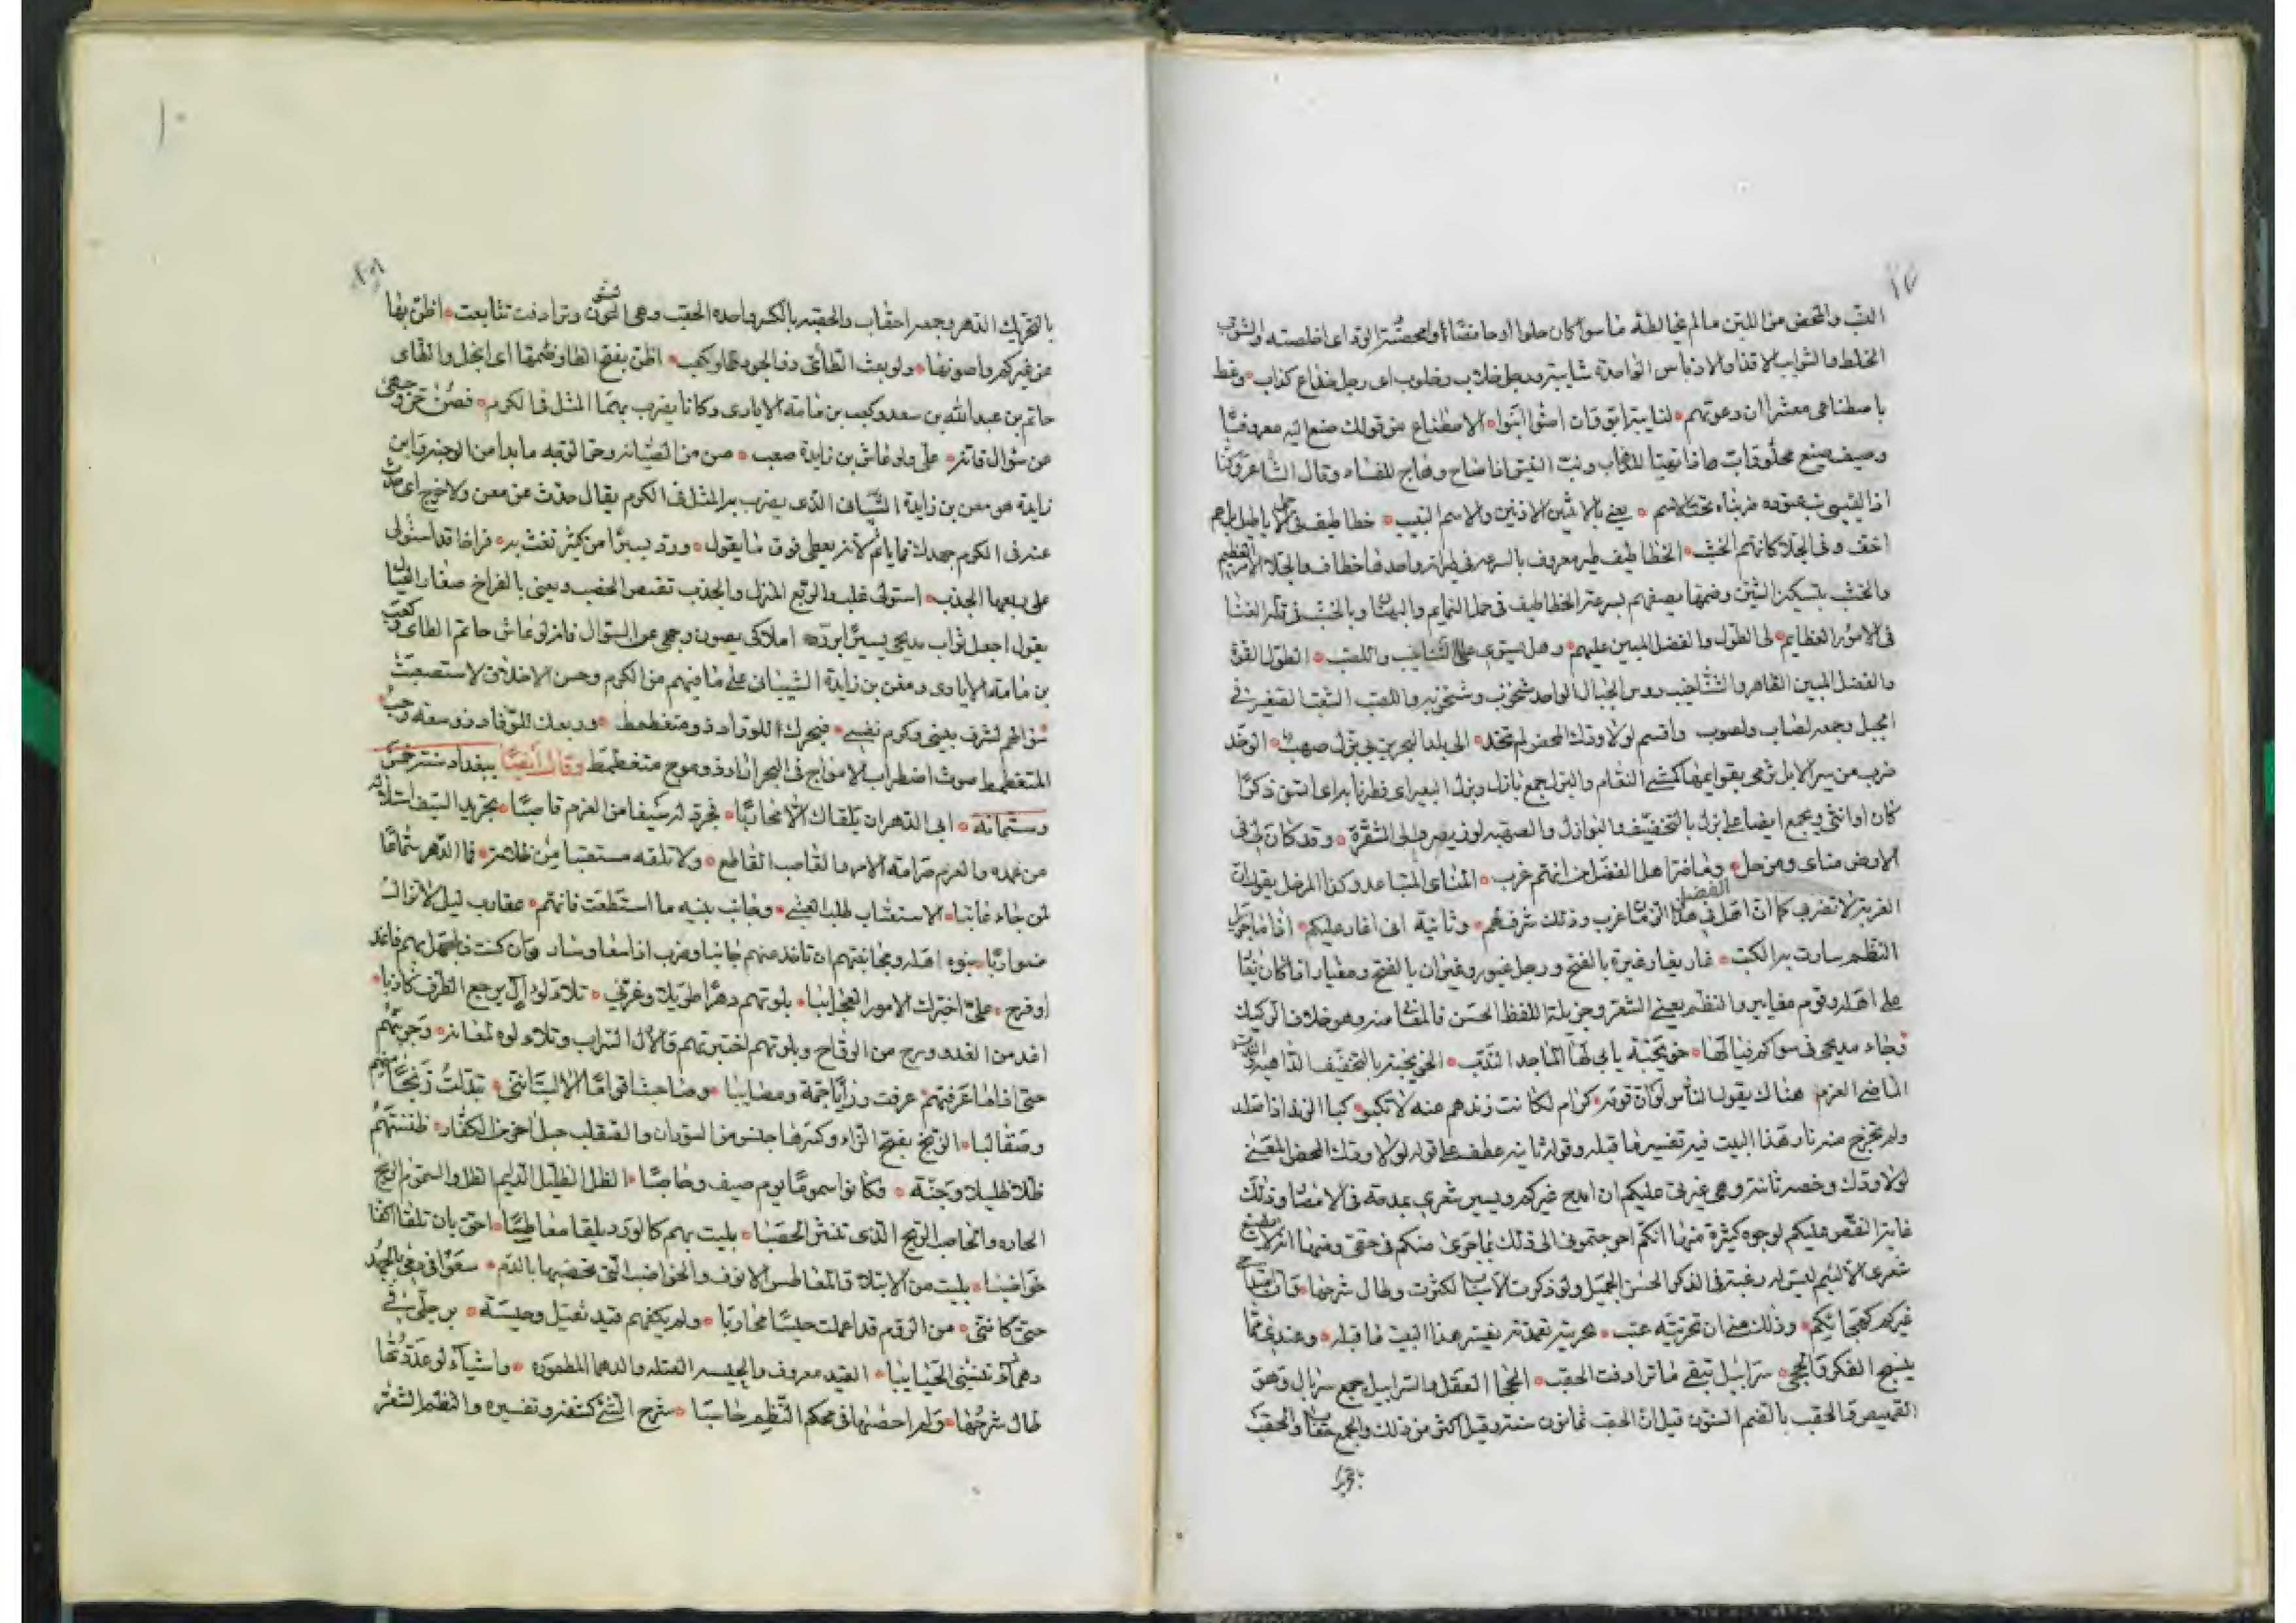 ١٧
اللب والمحض من اللبن مالم يخالطه ماسواء كان حلوا او حامضا وامحضته الود اى اخلصته والشوب
الخلط والشوايب الاقذاء والادناس الواحدة شايبة ورجل خلاب وخلوب اى رجل خداع كذاب وغط
باصطناعى معشرا ان دعوتهم لنايبة ابق وان امنوا انبوا الاصطناع من قولك صنع اليه معروفا
وصنع صنيع مخلوقات هاذا تهيا للضراب ونب العتيق اذا صاح وهاج للفساد وقال الشاعر وكنا
اذا القيسى نب عتوده ضربناه تحت الاسم يعنى بالانثيين الاذنين والاسم النبيب خطاطيف فى حمل الاباطيل بلهم
اخف وفى الجلا كانهم الخشب الخطاطيف طير معروف بالسرعة فى طيرانه واحدها خطاف والجلا الامر العظيم
والخشب بتسكين الشين وضمها يصفهم بسرعة الخطاطيف فى حمل النمايم والبهتان وبالخشب فى قلة الغنا
فى الامور العظايم لى الطول والفضل المبين عليهم وهل يستوى على الشناخيب واللصب الطول القوة
والفضل المبين الظاهر والشناخيب روس الجبال الواحد شنخوب وشنخوبه واللصب الشعب الصغير فى
الجبل وجمعه لصاب ولصوب واقسم لولا ودك المحض لم تخد الى بلد البحرين بى بزل صهب الوخد
ضرب من سير الابل ترمى بقوايمها كمشى النعام والبزل جمع بازل وبزل البعير اى فطر نابه اى انشق ذكرا
كان او انثى ويجمع ايضا على بزل بالتخفيف والبوازل والصهبه لون يضرب الى الشقرة وقد كان لى فى
الارض مناى ومرحل وما ضر اهل الفضل ان انهم غرب المناى المتباعد وكذا المرحل يقول ان
الغربة لا تضرنى كما ان اهل الفضل فى هذا الزمان غرب وذلك شرفهم وثانية انى اغار عليكم اذا ما جزيل
النظم سارت به الكتب غار يغار غيرة بالفتح ورجل غيور وغيران بالفتح ومغيار اذا كان يغار
على اهله وقوم مغايير والنظم يعنى الشعر وجزيله اللفظ الحسن والمعنى منه وهو خلاف الركيك
وجاء مديحى فى سواكم فيالها خويخية يابى لها الماجد الندب الخويخيه بالتخفيف الداهية
الماضى العزم هناك يقول الناس لو كان قومه كرام لكانت زندهم عنه لا تكبو كبا الزند اذا صلد
ولم تخرج منه نار هذا البيت فيه تفسير ما قبله وقوله ثانيه عطف على قوله لولا ودك المحض المعنى
لولا ودك وخصره ثانيه وهى غيرتى عليكم ان امدح غيركم ويسير شعرى بمدحه فى الامصار وذلك
غاية النقص عليكم لوجوه كثيرة منها انكم احوجتمونى الى ذلك بما جرى منكم فى حقى ومنها انه لا
شعرى الا لئيم ليس له رغبة فى الذكر الحسن الجميل ولو ذكرت الاسباب لكثرت وطال شرحها وان
غيركم كهجائكم وذلك منى ان تحريته عتب تحريته تعمدته تفسير هذا البيت ما قبله وعندى مما
ينسج الفكر والحجى سرابيل تبقى ما ترادفت الحقب الحجا العقل والسرابيل جمع سربال وهو
القميص والحقب بالضم السنون قيل ان الحقب ثمانون سنة وقيل اكثر من ذلك والجمع حقاب والحقب
بالتحريك
١٠
بالتحريك الدهر وجمعه احقاب والحقبه بالكسر واحده الحقب وهى السنون وترادفت تتابعت اظن بها
عن غيركم واصونها ولو بعث الطائى ذو الجود او كعب اظن بفتح الظا وضمها اى ابخل والطاى
حاتم بن عبدالله بن سعد وكعب بن مامه الايادى وكانا يضرب بهما المثل فى الكرم فصن حر وجهى
عن سؤال فانه على ولو عاش بن زايدة صعب صن من الصيانه وحر الوجه ما بدا من الوجنه وابن
زايدة هو معن بن زايدة الشيبانى الذى يضرب به المثل فى الكرم يقال حدث عن معن ولا حرج اى حدث
عنه فى الكرم جهدك فلا ياثم لانه يعطى فوق ما يقول ورد يسيرا من كثير تغث به فراخا قد استولى
على ربعها الجدب استولى غلب والربع المنزل والجدب نقيض الخصب ويعنى بالفراخ صغار العيال
يقول اجعل ثواب مديحى يسيرا برده املاكى يصون وجهى عن السؤال فانه لو عاش حاتم الطاى وكعب
بن مامه الايادى ومعن بن زايدة الشيبانى على ما فيهم من الكرم وحسن الاخلاق لاستصعبت
سؤالهم لشرف بيتى وكرم نفسى فبحرك للوراد ذو متغطمط وربعك للوفاد ذو سعة رحب
المتغطمط صوت اضطراب الامواج فى البحر اذا وذو موج متغطمط وقال ايضا ببغداد سنة خمس
وستمائة ابى الدهر ان يلقاك الا محاربا فجرد له سيفا من العزم قاضبا تجريد السيف استلاله
من غمده والعزم صرامة الامر والقاضب القاطع ولا تلقه مستعتبا من ظلامة فما الدهر سماعا
لمن جاء عاتبا الاستعتاب طلب العتبى وجانب بنيه ما استطعت فانهم عقارب ليل لا تزال
ضواربا بنوه اهله ومجانبتهم ان تاخذ منهم جانبا وضرب اذا سعا وسار وان كنت ذا جهل بهم فاغد
او فرح على اخبرك الامور العجايبا بلوتهم دهرا طويلا وغرنى تلالؤ لوداك يرجع الطرف كاذبا
اغد من الغدو ورح من الرواح وبلوتهم اختبرتهم والال السراب وتلالؤه لمعانه وجربتهم
حتى اذا ما عرفتهم عرفت رزايا جمة ومصايبا وصاحبت اقواما الا ليتنى تبدلت زنجا منهم
وصقالبا الزنج بفتح الزاء وكسرها جنس من السودان والصقلب جيل اخر من الكفار ظننتهم
ظلا ظليلا وجنة فكانوا سموما يوم صيف وحاصبا الظل الظليل الدايم الظل والسموم الريح
الحاره والحاصب الريح الذى تنثر الحصبا بليت بهم كالورد يلقا معاطسا احق بان تلقا اكفا
خواضبا بليت من الابتلا والمعاطس الانوف والخواضب التى تخضبها بالدم سعوا فى دمى بالجهد
حتى كاننى من الروم قد اعملت جيشا محاربا ولم يكفهم قيد ثقيل وحبسة برجلى فى
دهماء تنسى الحبايبا القيد معروف والحبسه العقله والدهما المطموره واشياء لو عددتها
طال شرحها ولم احصها فى محكم النظم حاسبا شرح الشئ كشفه وتفسيره والنظم الشعر